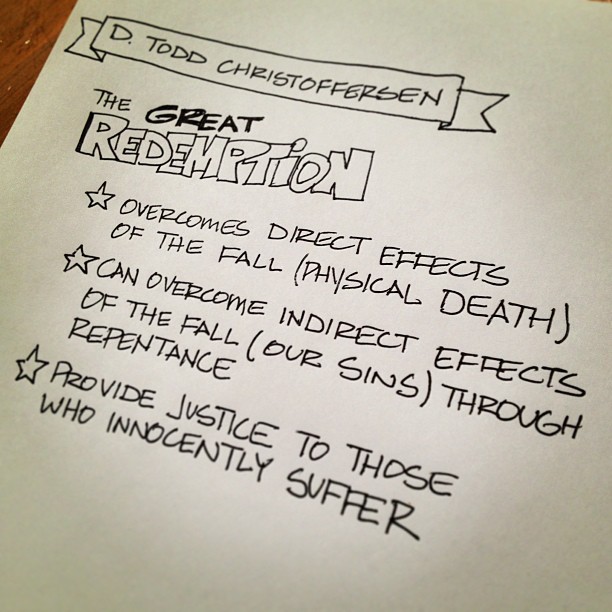 D. TODD CHRISTOFFERSEN
THE GREAT
REDEMPTION
☆ OVERCOMES DIRECT EFFECTS
OF THE FALL (PHYSICAL DEATH)
☆ CAN OVERCOME INDIRECT EFFECTS
OF THE FALL (OUR SINS) THROUGH
REPENTANCE
☆ PROVIDE JUSTICE TO THOSE
WHO INNOCENTLY SUFFER